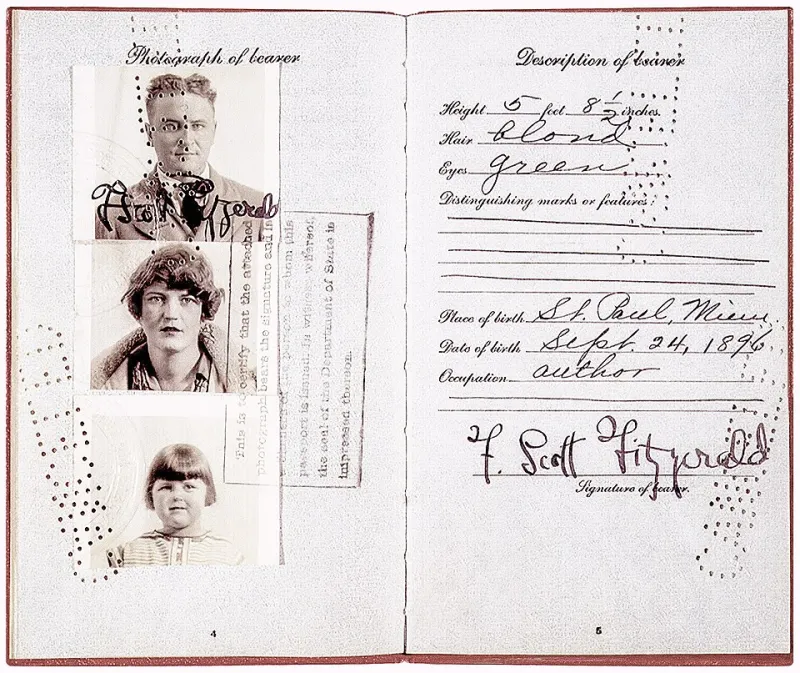 Photograph of bearer
F Scott Fitzgerald
This is to certify that the attached
photograph bears the signature and is
of the person to whom this
passport is issued. In witness whereof
the seal of the Department of State is
impressed thereon.
4
Description of bearer
Height 5 feet 8 ½ inches.
Hair blond
Eyes green
Distinguishing marks or features:
Place of birth St. Paul, Minn.
Date of birth Sept. 24, 1896
Occupation author
F. Scott Fitzgerald
Signature of bearer.
5